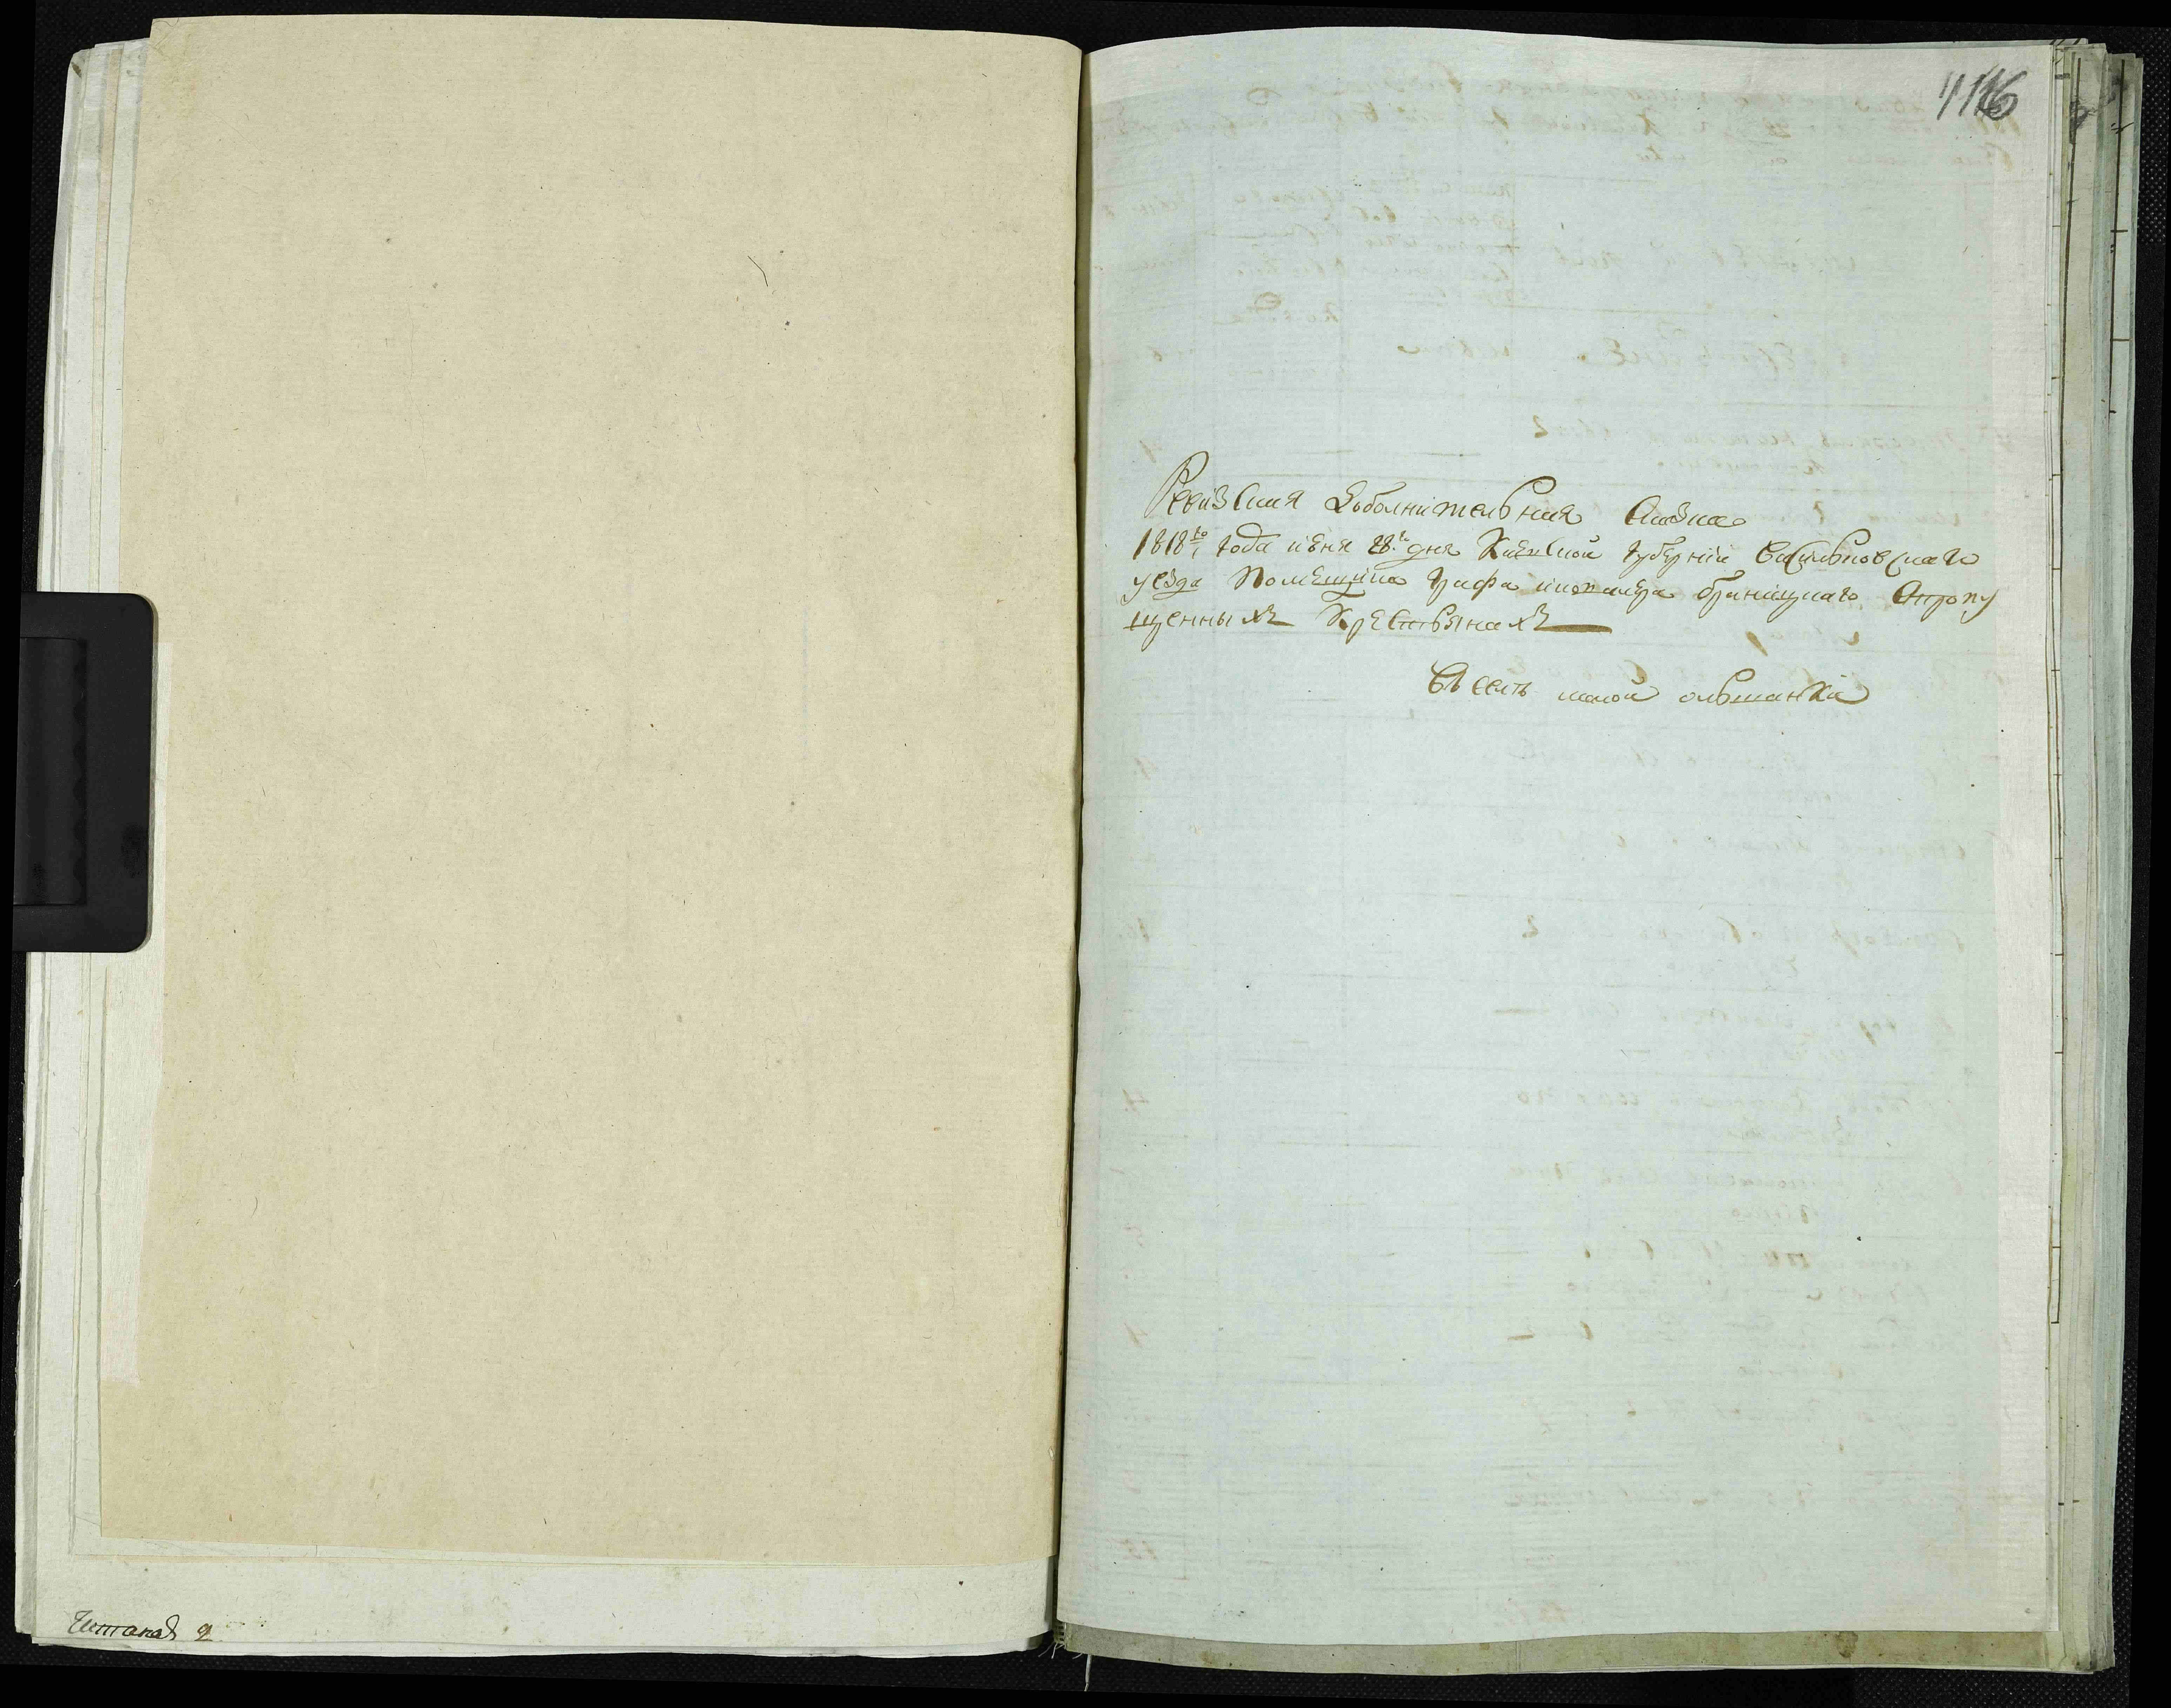 116
Ревизская дополнителная сказка
1818го года июня 28го дня Киевской губернии васильковскаго
уезда Помещика Графа Браницкаго О пропу
щенныхъ Крестьянахъ
въ селе малой ольшанки
Читалъ